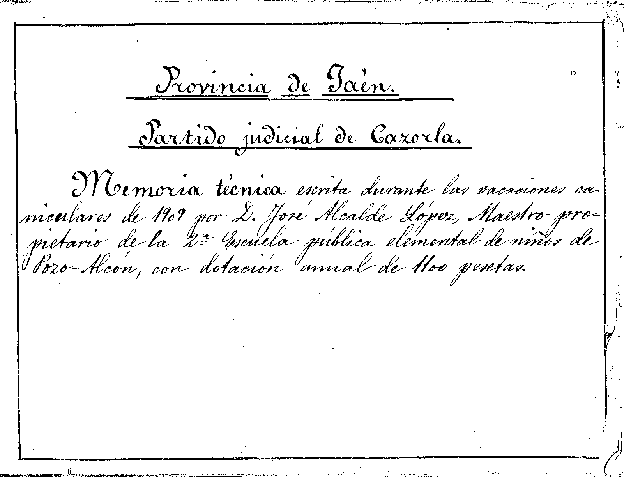 Provincia de Jaén.
Partido judicial de Cazorla.
Memoria técnica escrita durante las vacaciones ca-
niculares de 1909 por D. José Alcalde López, Maestro-pro-
pietario de la 2ª Escuela pública elemental de niños de
Pozo-Alcón, con dotación anual de 1100 pesetas.